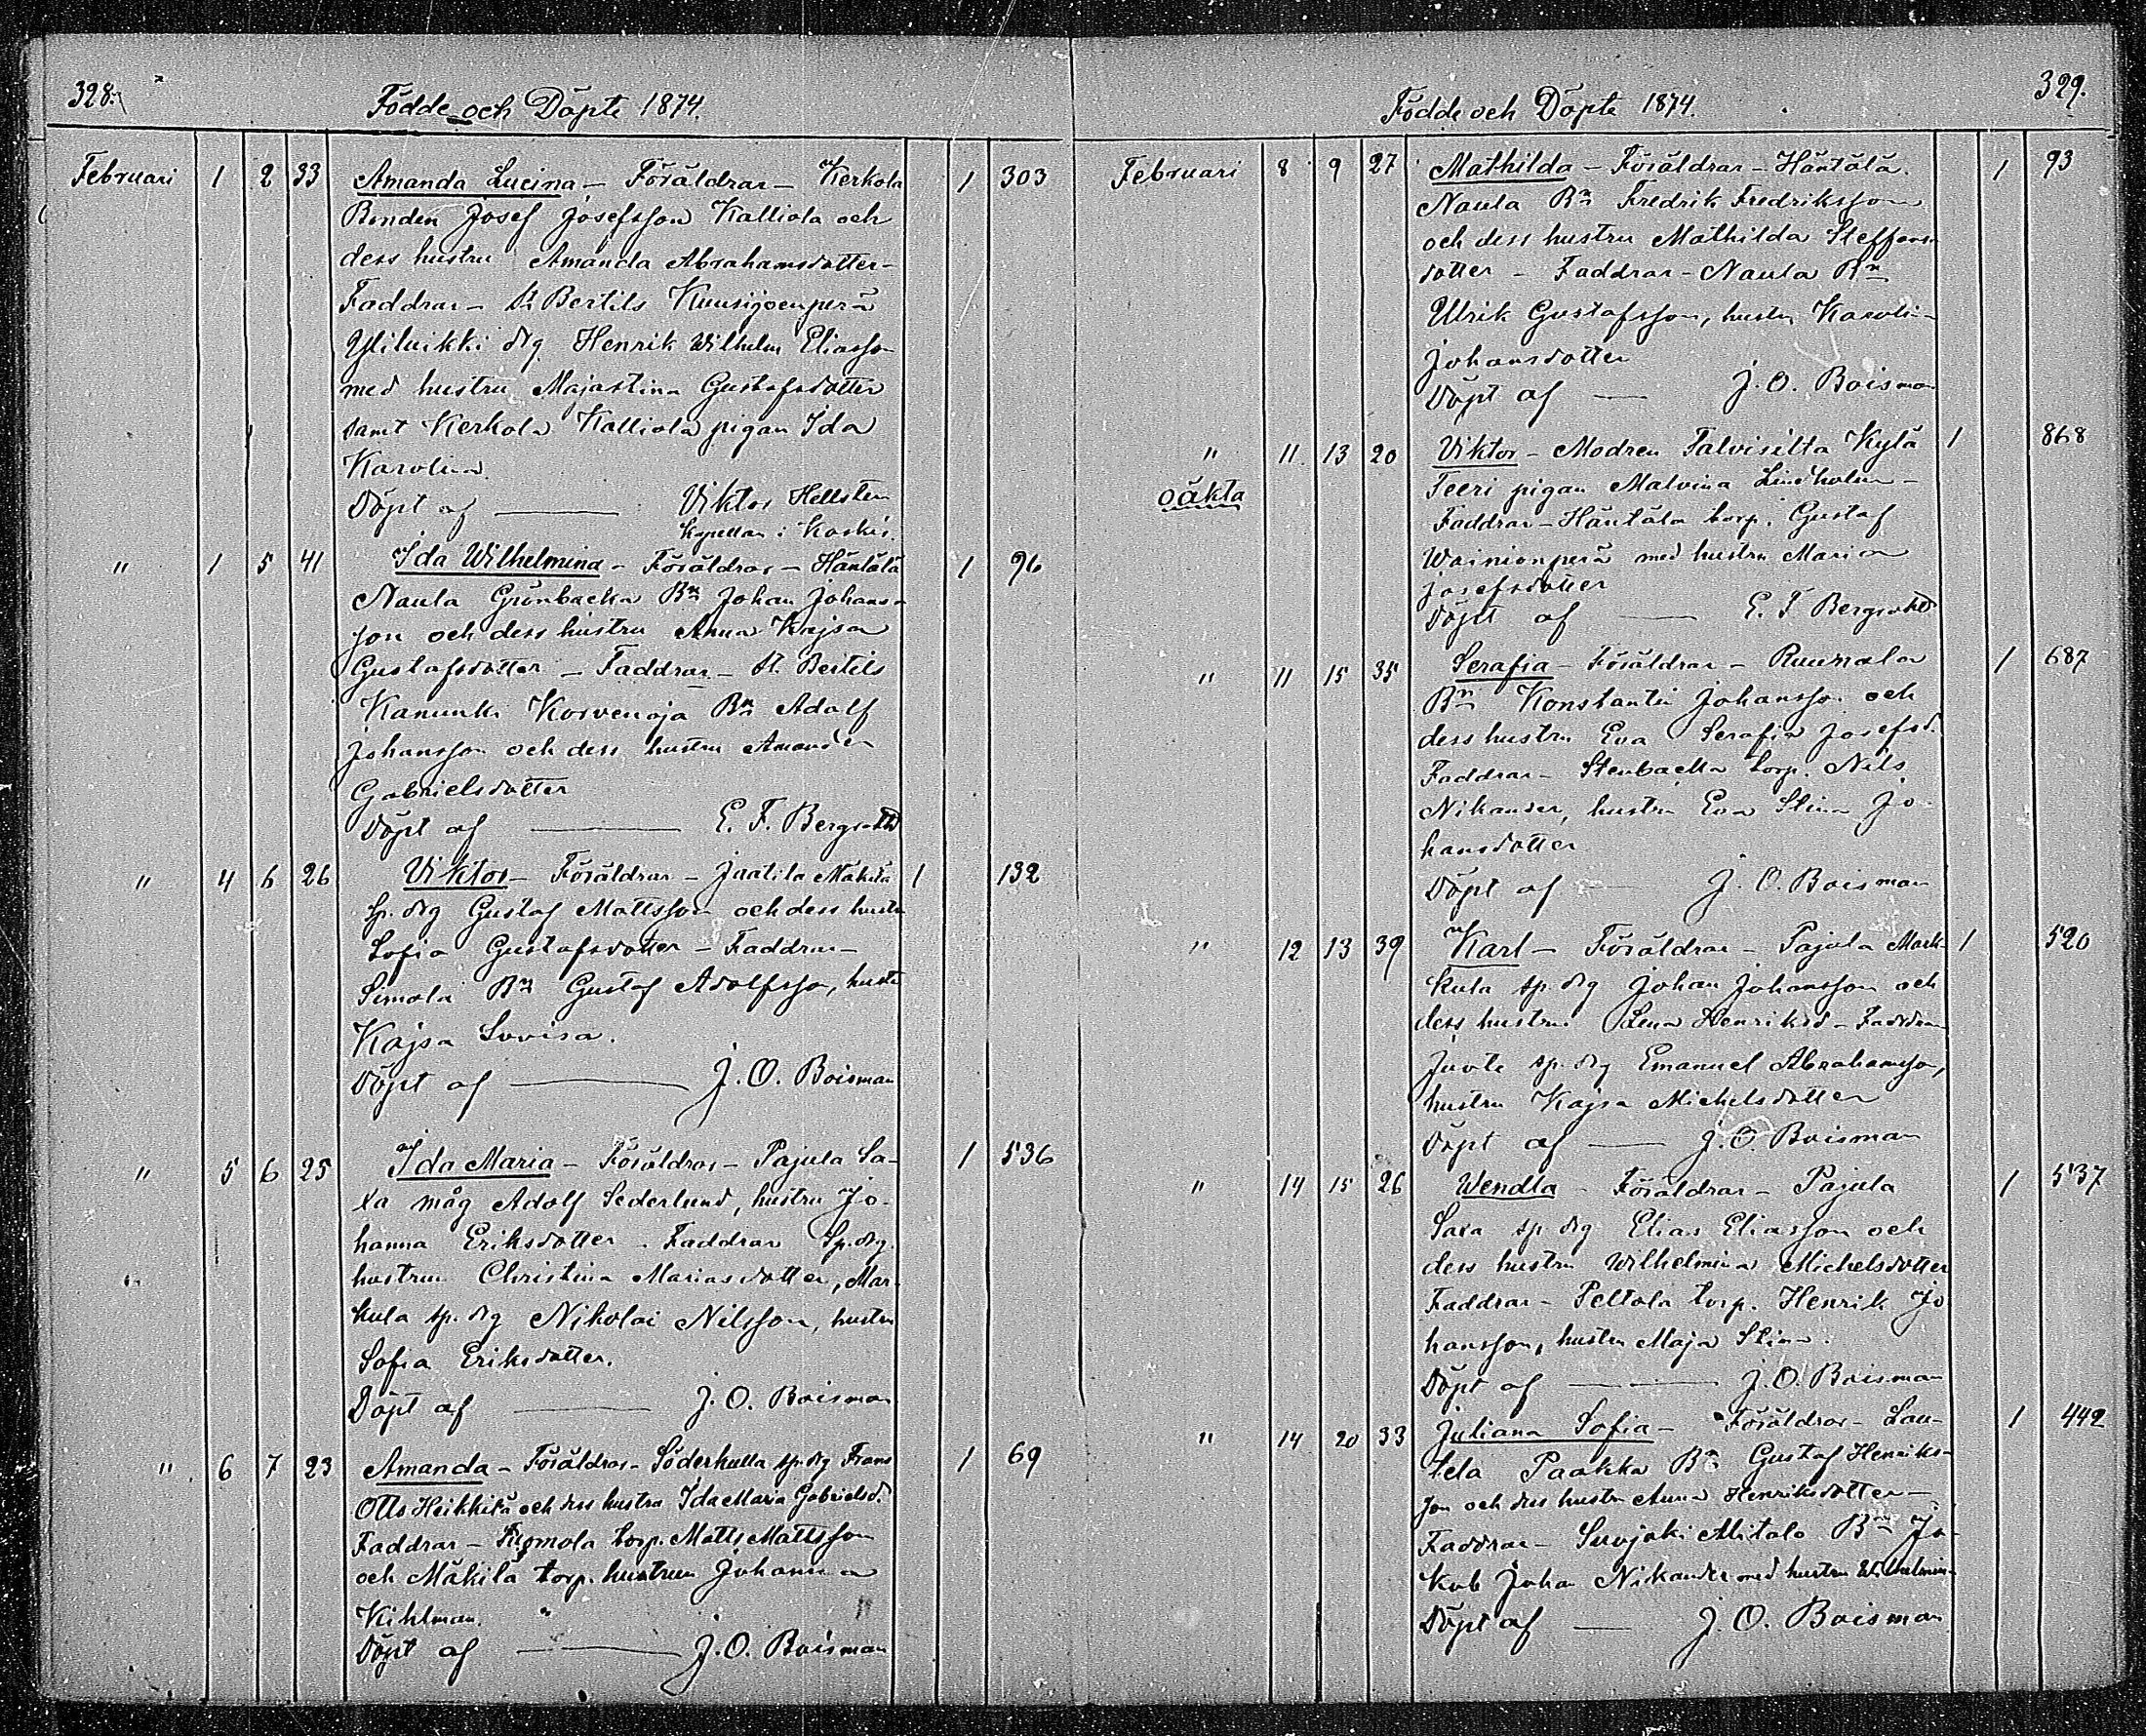 328.
Födde och Döpte 1874.
Februari 1 2 33 Amanda Lucina - Föräldrar - Kerkola 1 303
Bonden Josef Josefsson Kalliola och
dess hustru Amanda Abrahamsdotter -
Faddrar - St Bertils Kuusijoenperä
Yliluikki drg Henrik Wilhelm Eliasson
med hustru Majastina Gustafsdotter
samt Kerkola Kalliola pigan Ida
Karolina
Döpt af — Viktor Hellsten
Kapellan i Koskis.
" 1 5 41 Ida Wilhelmina - Föräldrar - Häntälä 1 96
Naula Grönbacka Bn Johan Johans-
son och dess hustru Anna Kajsa
Gustafsdotter - Faddrar - St. Bertils
Kanunki Korvenoja Bn Adolf
Johansson och dess hustru Amanda
Gabrielsdotter
Döpt af — E. F. Bergroth
" 4 6 26 Viktor - Föräldrar - Jaatila Mäkilä 1 132
sp. drg Gustaf Mattsson och dess hustru
Sofia Gustafsdotter - Faddrar -
Simola Bn Gustaf Adolfsson, hustru
Kajsa Lovisa.
Döpt af — J. O. Boisman
" 5 6 25 Ida Maria - Föräldrar - Pajula Sa- 1 536
xa måg Adolf Sederlund, hustru Jo-
hanna Eriksdotter - Faddrar Sp. drg.
" hustrun Christina Mariasdotter, Mar-
kula sp. drg Nikolai Nilsson, hustru
Sofia Eriksdotter.
Döpt af — J. O. Boisman
" 6 7 23 Amanda - Föräldrar - Söderkulla sp. drg Frans 1 69
Otto Heikkilä och dess hustru Ida Maria Gabrielsd.
Faddrar - torp. Matts Mattsson
och Mäkilä torp. hustrun Johanna
Kihlman.
Döpt af — J. O. Boisman
329.
Födde och Döpte 1874.
Februari 8 9 27 Mathilda - Föräldrar - Häntälä 1 93
Naula Bn Fredrik Fredriksson
och dess hustru Mathilda Steffans-
dotter - Faddrar - Naula Bn
Ulrik Gustafsson, hustru Karolin
Johansdotter
Döpt af — J. O. Boisman
" 11 13 20 Viktor - Modren Talvisilta Kylä 1 868
oäkta Teeri pigan Malvina Lindholm -
Faddrar - Häntälä torp. Gustaf
Wainionperä med hustru Maria
Josefsdotter
Döpt af — E. F. Bergroth
" 11 15 35 Serafia - Föräldrar - Ruunala 1 687
Bn Konstantin Johansson och
dess hustru Eva Serafia Josefsd.
Faddrar - Stenbacka torp. Nils
Nikander, hustru Eva Stina Jo-
hansdotter
Döpt af — J. O. Boisman
" 12 13 39 Karl - Föräldrar - Pajula Mark- 1 520
kula sp. drg Johan Johansson och
dess hustru Lena Henriksd - Faddrar
Juvte sp. drg Emanuel Abrahamsson,
hustru Kajsa Michelsdotter
Döpt af — J. O. Boisman
" 14 15 26 Wendla - Föräldrar - Pajula 1 537
Saxa sp. drg Elias Eliasson och
dess hustru Wilhelmina Michelsdotter
Faddrar - Peltola torp. Henrik Jo-
hansson, hustru Maja Stina.
Döpt af — J. O. Boisman
" 14 20 33 Juliana Sofia - Föräldrar - Lau- 1 442
tela Paakka Bn Gustaf Henriks-
son och dess hustru Anna Henriksdotter -
Faddrar - Suojoki Alitalo Bn Ja-
kob Johan Nikander med hustru Wilhelmina
Döpt af — J. O. Boisman